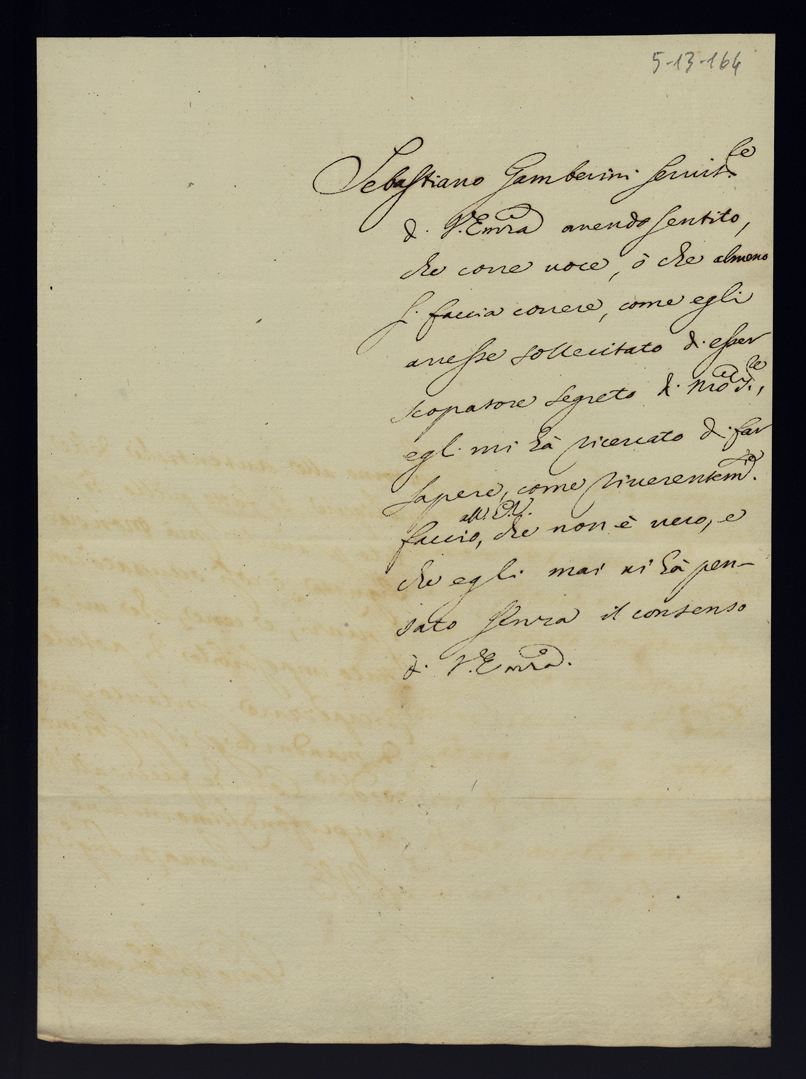 5-13-164
Sebastiano Gamberini servit.re
di V. Em.za avendo sentito,
che corre voce, ò che almeno
si faccia correre, come egli
avesse sollecitato di esser
scopatore segreto di
egli mi hà ricercato di far
sapere, come riverentem.e
faccio, all'E.V. che non è vero, e
che egli mai vi hà pen-
sato senza il consenso
di V. Em.za.